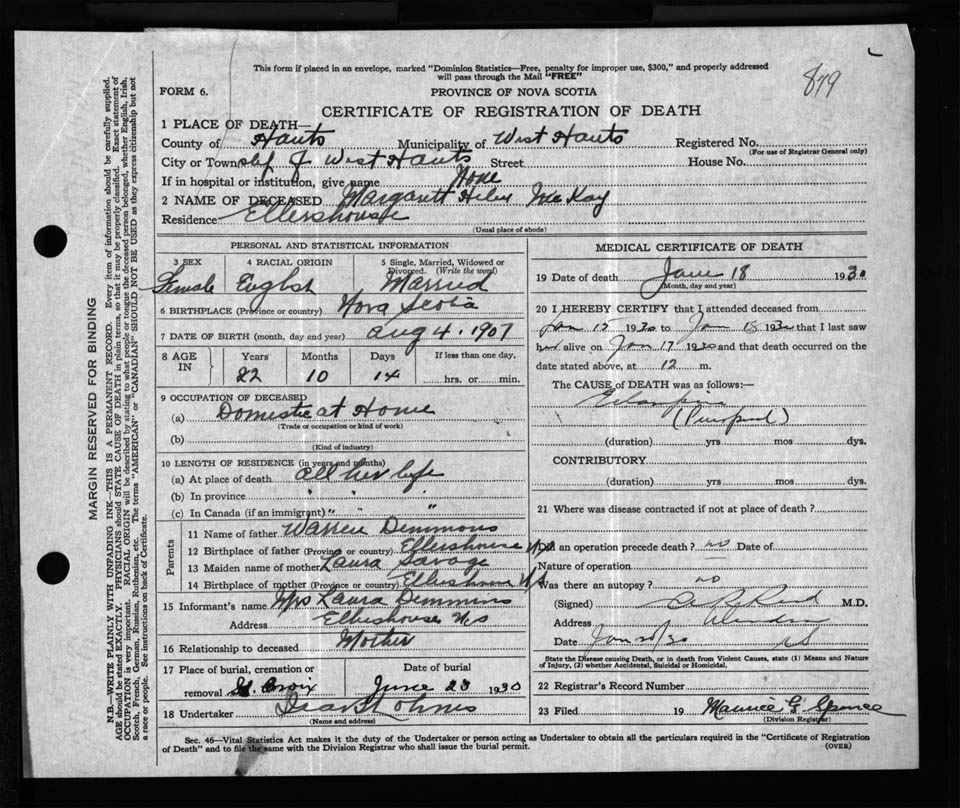 879
This form if placed in an envelope, marked "Dominion Statistics—Free, penalty for improper use, $300," and properly addressed
will pass through the Mail "FREE"
FORM 6.
PROVINCE OF NOVA SCOTIA
CERTIFICATE OF REGISTRATION OF DEATH
1 PLACE OF DEATH—
County of Hants Municipality of West Hants Registered No.
(For use of Registrar General only)
City or Town of West Hants Street House No.
If in hospital or institution, give name
2 NAME OF DECEASED Margarett Helen McKay
Residence Ellershouse
(Usual place of abode)
PERSONAL AND STATISTICAL INFORMATION
3 SEX 4 RACIAL ORIGIN 5 Single, Married, Widowed or
Divorced. (Write the word)
Female English Married
6 BIRTHPLACE (Province or country) Nova Scotia
7 DATE OF BIRTH (month, day and year) Aug 4. 1907
8 AGE IN Years Months Days If less than one day,
22 10 14 hrs. or min.
9 OCCUPATION OF DECEASED
(a) Domestic at Home
(Trade or occupation or kind of work)
(b)
(Kind of industry)
10 LENGTH OF RESIDENCE (in years and months)
(a) At place of death all her life
(b) In province " " "
(c) In Canada (if an immigrant) " " "
Parents
11 Name of father Warren Demmons
12 Birthplace of father (Province or country) Ellershouse NS
13 Maiden name of mother Laura Savage
14 Birthplace of mother (Province or country) Ellershouse NS
15 Informant's name Mrs Laura Demmins
Address Ellershouse NS
16 Relationship to deceased Mother
17 Place of burial, cremation or Date of burial
removal St. Croix June 23 1930
18 Undertaker
(Name and address)
MEDICAL CERTIFICATE OF DEATH
19 Date of death June 18 1930
(Month, day and year)
20 I HEREBY CERTIFY that I attended deceased from
1930 to 18 1930 that I last saw
her alive on 17 1930 and that death occurred on the
date stated above, at 12 m.
The CAUSE of DEATH was as follows:—
(duration) yrs mos dys.
CONTRIBUTORY
(duration) yrs mos dys.
21 Where was disease contracted if not at place of death?
Did an operation precede death? no Date of
Nature of operation
Was there an autopsy? no
(Signed) M.D.
Address Windsor
Date 20/30 NS
State the Disease causing Death, or in death from Violent Causes, state (1) Means and Nature
of Injury, (2) whether Accidental, Suicidal or Homicidal.
22 Registrar's Record Number
23 Filed 19 Maurice G. Spence
(Division Registrar)
Sec. 46—Vital Statistics Act makes it the duty of the Undertaker or person acting as Undertaker to obtain all the particulars required in the "Certificate of Registration
of Death" and to file the same with the Division Registrar who shall issue the burial permit.
(OVER)
MARGIN RESERVED FOR BINDING
N.B.—WRITE PLAINLY WITH UNFADING INK—THIS IS A PERMANENT RECORD. Every item of information should be carefully supplied.
AGE should be stated EXACTLY. PHYSICIANS should STATE CAUSE OF DEATH in plain terms, so that it may be properly classified. Exact statement of
OCCUPATION is very important. RACIAL ORIGIN will be described by stating to what people or tongue the deceased person belonged, whether English, Irish,
Scotch, French, German, Russian, Ruthenian, etc. The terms "AMERICAN" or "CANADIAN" SHOULD NOT BE USED as they express citizenship but not
a race or people. See instructions on back of Certificate.